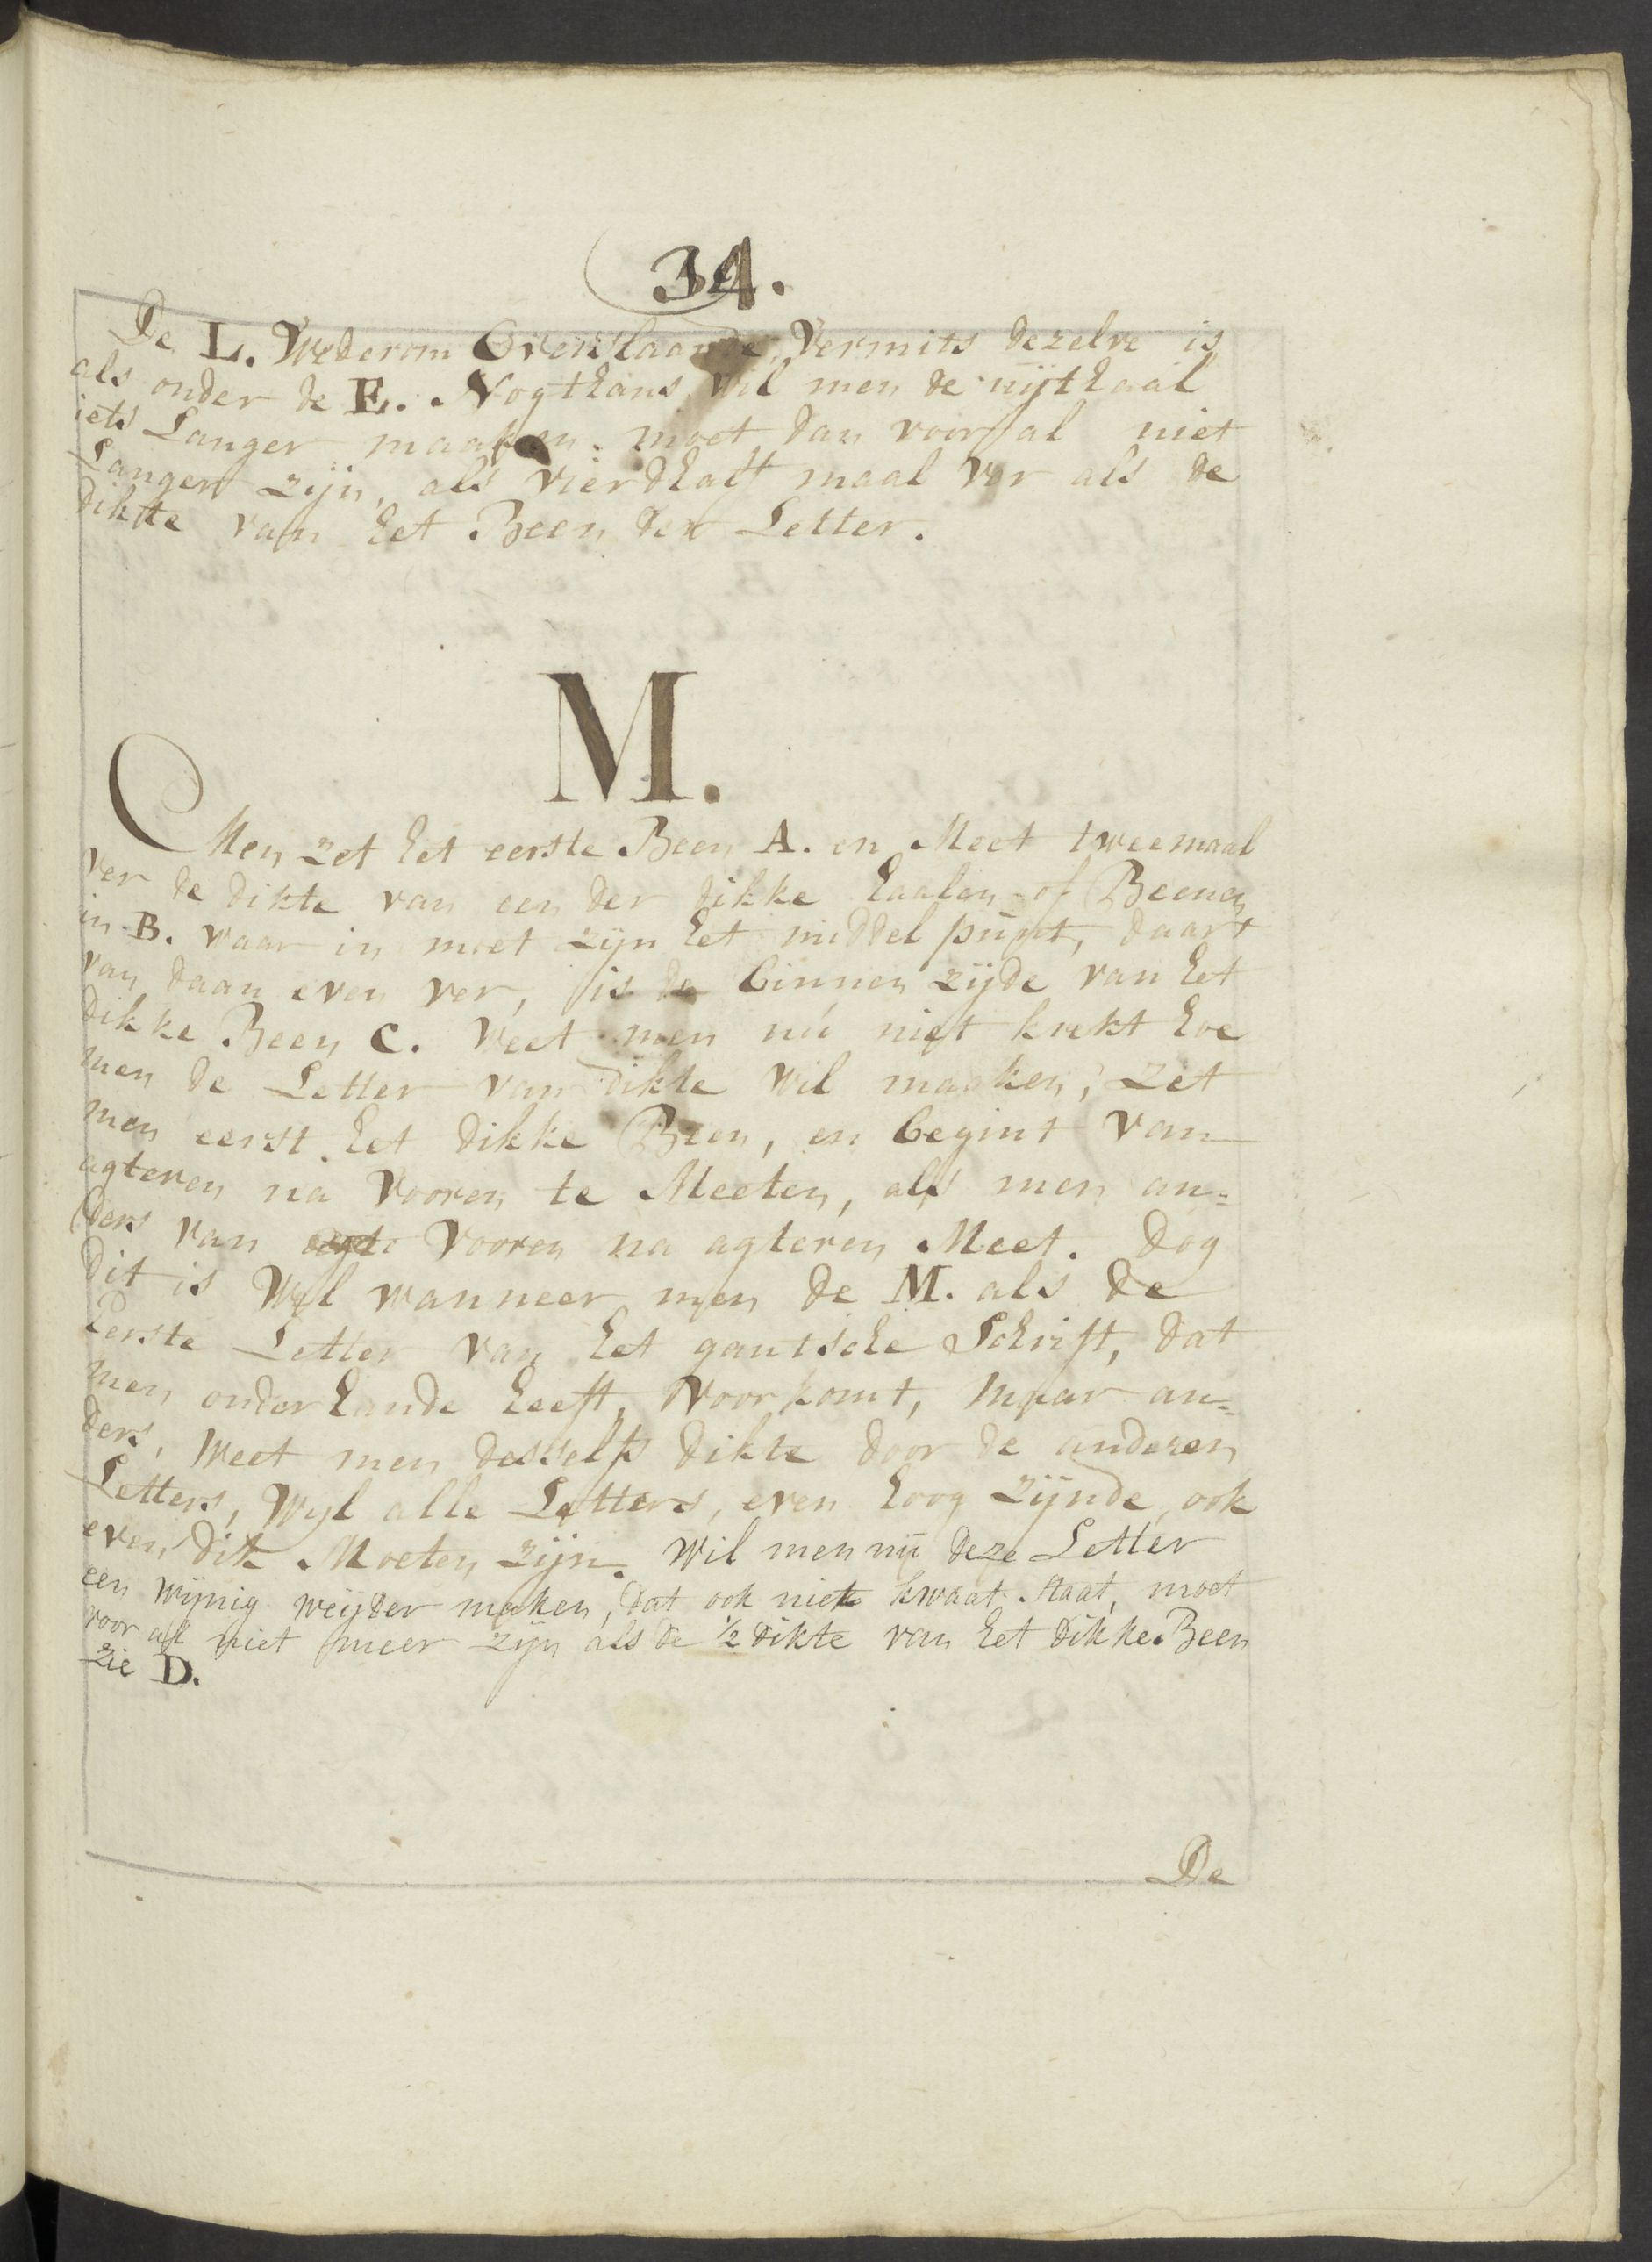 34.
De L. Wederom Overslaande, Vermits dezelve is
als onder de E. Nogthans wil men de uijthaal
iets Langer maaken, moet dan voor al niet
Langer zijn, als vierdhalf maal ver als de
dikte van het Been der Letter.
M.
Men zet het eerste Been A. en Meet tweemaal
ver de dikte van een der dikke haalen of Beenen
in B. waar in moet zijn het middel punt, daart
van daan even ver, is de binnen zijde van het
dikke Been C. Weet men nú niet krekt hoe
men de Letter van dikte wil maaken, zet
men eerst het dikke Been, en begint van
agteren na Vooren te Meeten, als men an=
ders van agte Vooren na agteren Meet. Dog
dit is Wel wanneer men de M. als de
Eerste Letter van het gantsche Schrift, dat
men onderhande heeft, Voorkomt, maar an=
ders, Weet men desselfs dikte door de anderen
Letters, Wyl alle Letters, even hoog zijnde, ook
even dik Moeten zijn. Wil men nú deze Letter
een wijnig weijder maken, dat ook niet kwaat staat, moet
voor al niet meer zijn als de 1/2 dikte van het dikke Been
zie D.
De